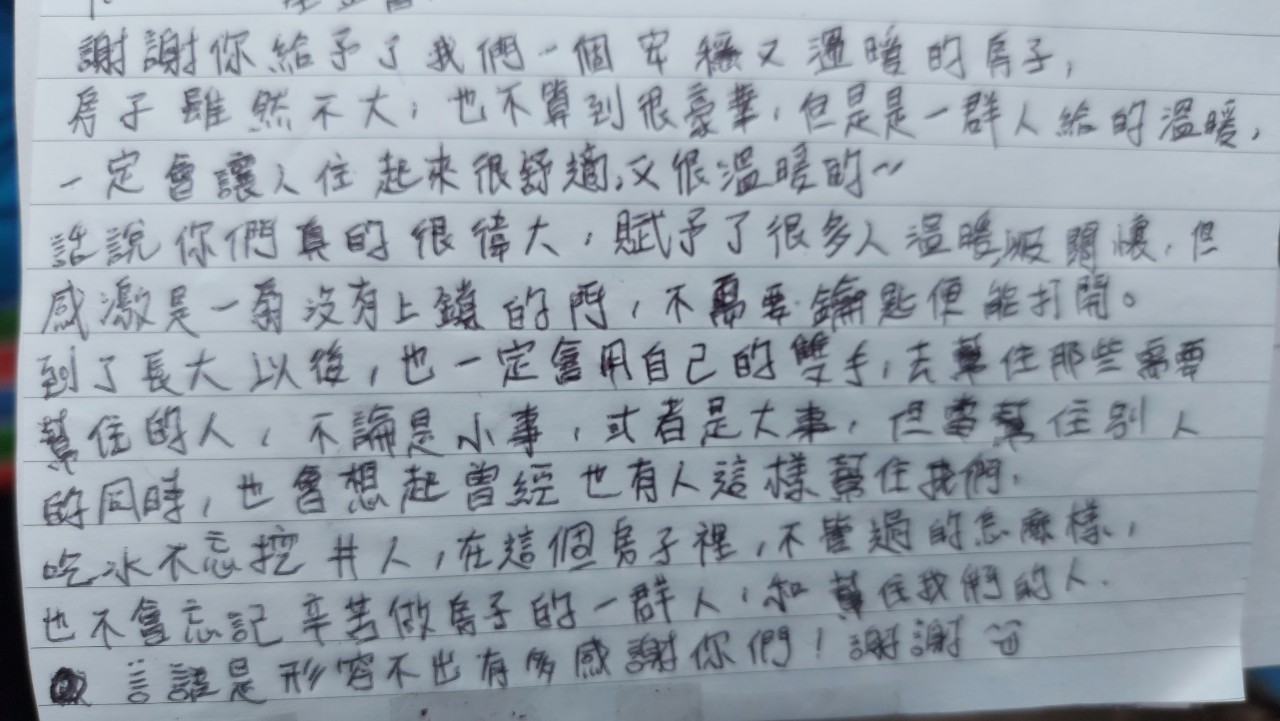 謝謝你給予了我們一個安穩又溫暖的房子,
房子雖然不大,也不算到很豪華,但是是一群人給的溫暖,
一定會讓人住起來很舒適,又很溫暖的~
話說你們真的很偉大,賦予了很多人溫暖及關懷,但
感激是一扇沒有上鎖的門,不需要鑰匙便能打開。
到了長大以後,也一定會用自己的雙手,去幫住那些需要
幫住的人,不論是小事,或者是大事,但當幫住別人
的同時,也會想起曾經也有人這樣幫住我們.
吃水不忘挖井人,在這個房子裡,不管過的怎麼樣,
也不會忘記辛苦做房子的一群人,和幫住我們的人.
言語是形容不出有多感謝你們!謝謝